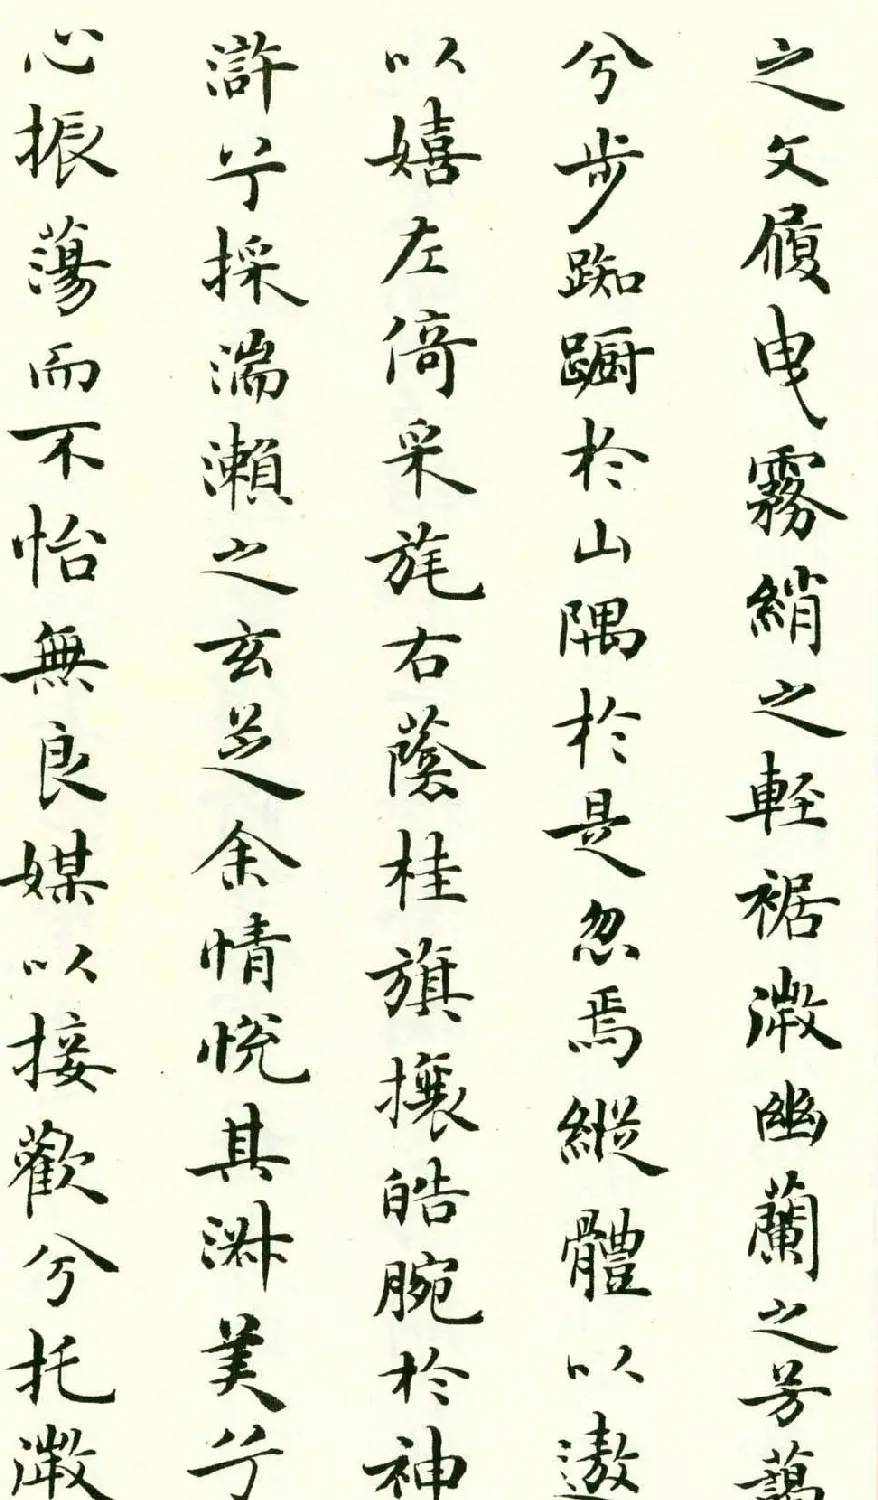 之文履曳霧綃之輕裾微幽蘭之芳藹
兮步踟躕於山隅於是忽焉縱體以遨
以嬉左倚采旄右蔭桂旗攘皓腕於神
滸兮採湍瀨之玄芝余情悅其淑美兮
心振蕩而不怡無良媒以接歡兮托微